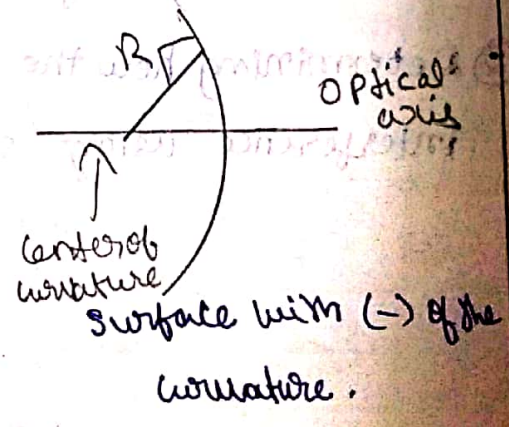 R
Optical
axis
Center of
curvature
Surface with (-) of the
curvature.